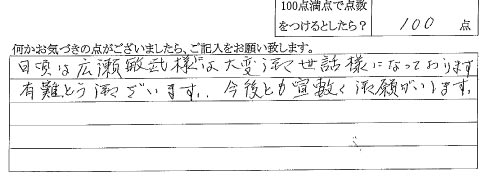 100点満点で点数
をつけるとしたら? 100 点
何かお気づきの点がございましたら、ご記入をお願い致します。
日頃は広瀬敏武様には大変御世話様になっております
有難とう御ざいます。今後とも宜敷く御願がいします。